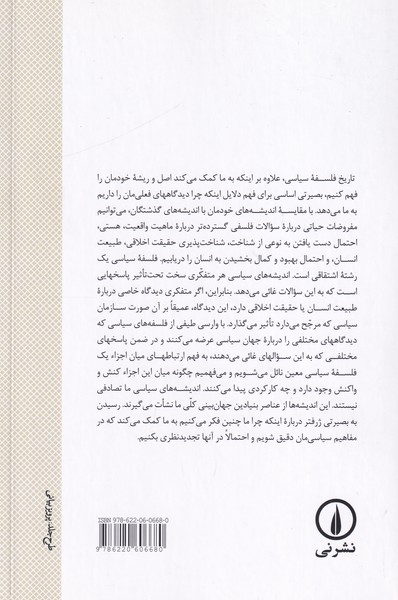 تاریخ فلسفهٔ سیاسی، علاوه بر اینکه به ما کمک می‌کند اصل و ریشهٔ خودمان را
فهم کنیم، بصیرتی اساسی برای فهم دلایل اینکه چرا دیدگاههای فعلی‌مان را داریم
به ما می‌دهد. با مقایسهٔ اندیشه‌های خودمان با اندیشه‌های گذشتگان، می‌توانیم
مفروضات حیاتی دربارهٔ سؤالات فلسفی گسترده‌تر دربارهٔ ماهیت واقعیت، هستی،
احتمال دست یافتن به نوعی از شناخت، شناخت‌پذیری حقیقت اخلاقی، طبیعت
انسان، و احتمال بهبود و کمال بخشیدن به انسان را دریابیم. فلسفهٔ سیاسی یک
رشتهٔ اشتقاقی است. اندیشه‌های سیاسی هر متفکّری سخت تحت‌تأثیر پاسخهایی
است که به این سؤالات غائی می‌دهد. بنابراین، اگر متفکری دیدگاه خاصی دربارهٔ
طبیعت انسان یا حقیقت اخلاقی دارد، این دیدگاه، عمیقاً بر آن صورت سازمان
سیاسی که مرجّح می‌دارد تأثیر می‌گذارد. با وارسی طیفی از فلسفه‌های سیاسی که
دیدگاههای مختلفی را دربارهٔ جهان سیاسی عرضه می‌کنند و در ضمن پاسخهای
مختلفـی که به این سؤالهای غائی می‌دهند، به فهم ارتباطهای میان اجزاء یک
فلسفهٔ سیاسی معین نائل می‌شویم و می‌فهمیم چگونه میان این اجزاء کنش و
واکنش وجود دارد و چه کارکردی پیدا می‌کنند. اندیشه‌های سیاسی ما تصادفی
نیستند. این اندیشه‌ها از عناصر بنیادین جهان‌بینی کلّی ما نشأت می‌گیرند. رسیدن
به بصیرتی ژرفتر دربارهٔ اینکه چرا ما چنین فکر می‌کنیم به ما کمک می‌کند که در
مفاهیم سیاسی‌مان دقیق شویم و احتمالاً در آنها تجدیدنظری بکنیم.
ISBN 978-622-06-0668-0
9 786220 606680
نشر نی
طرح جلد: پرویز بیانی